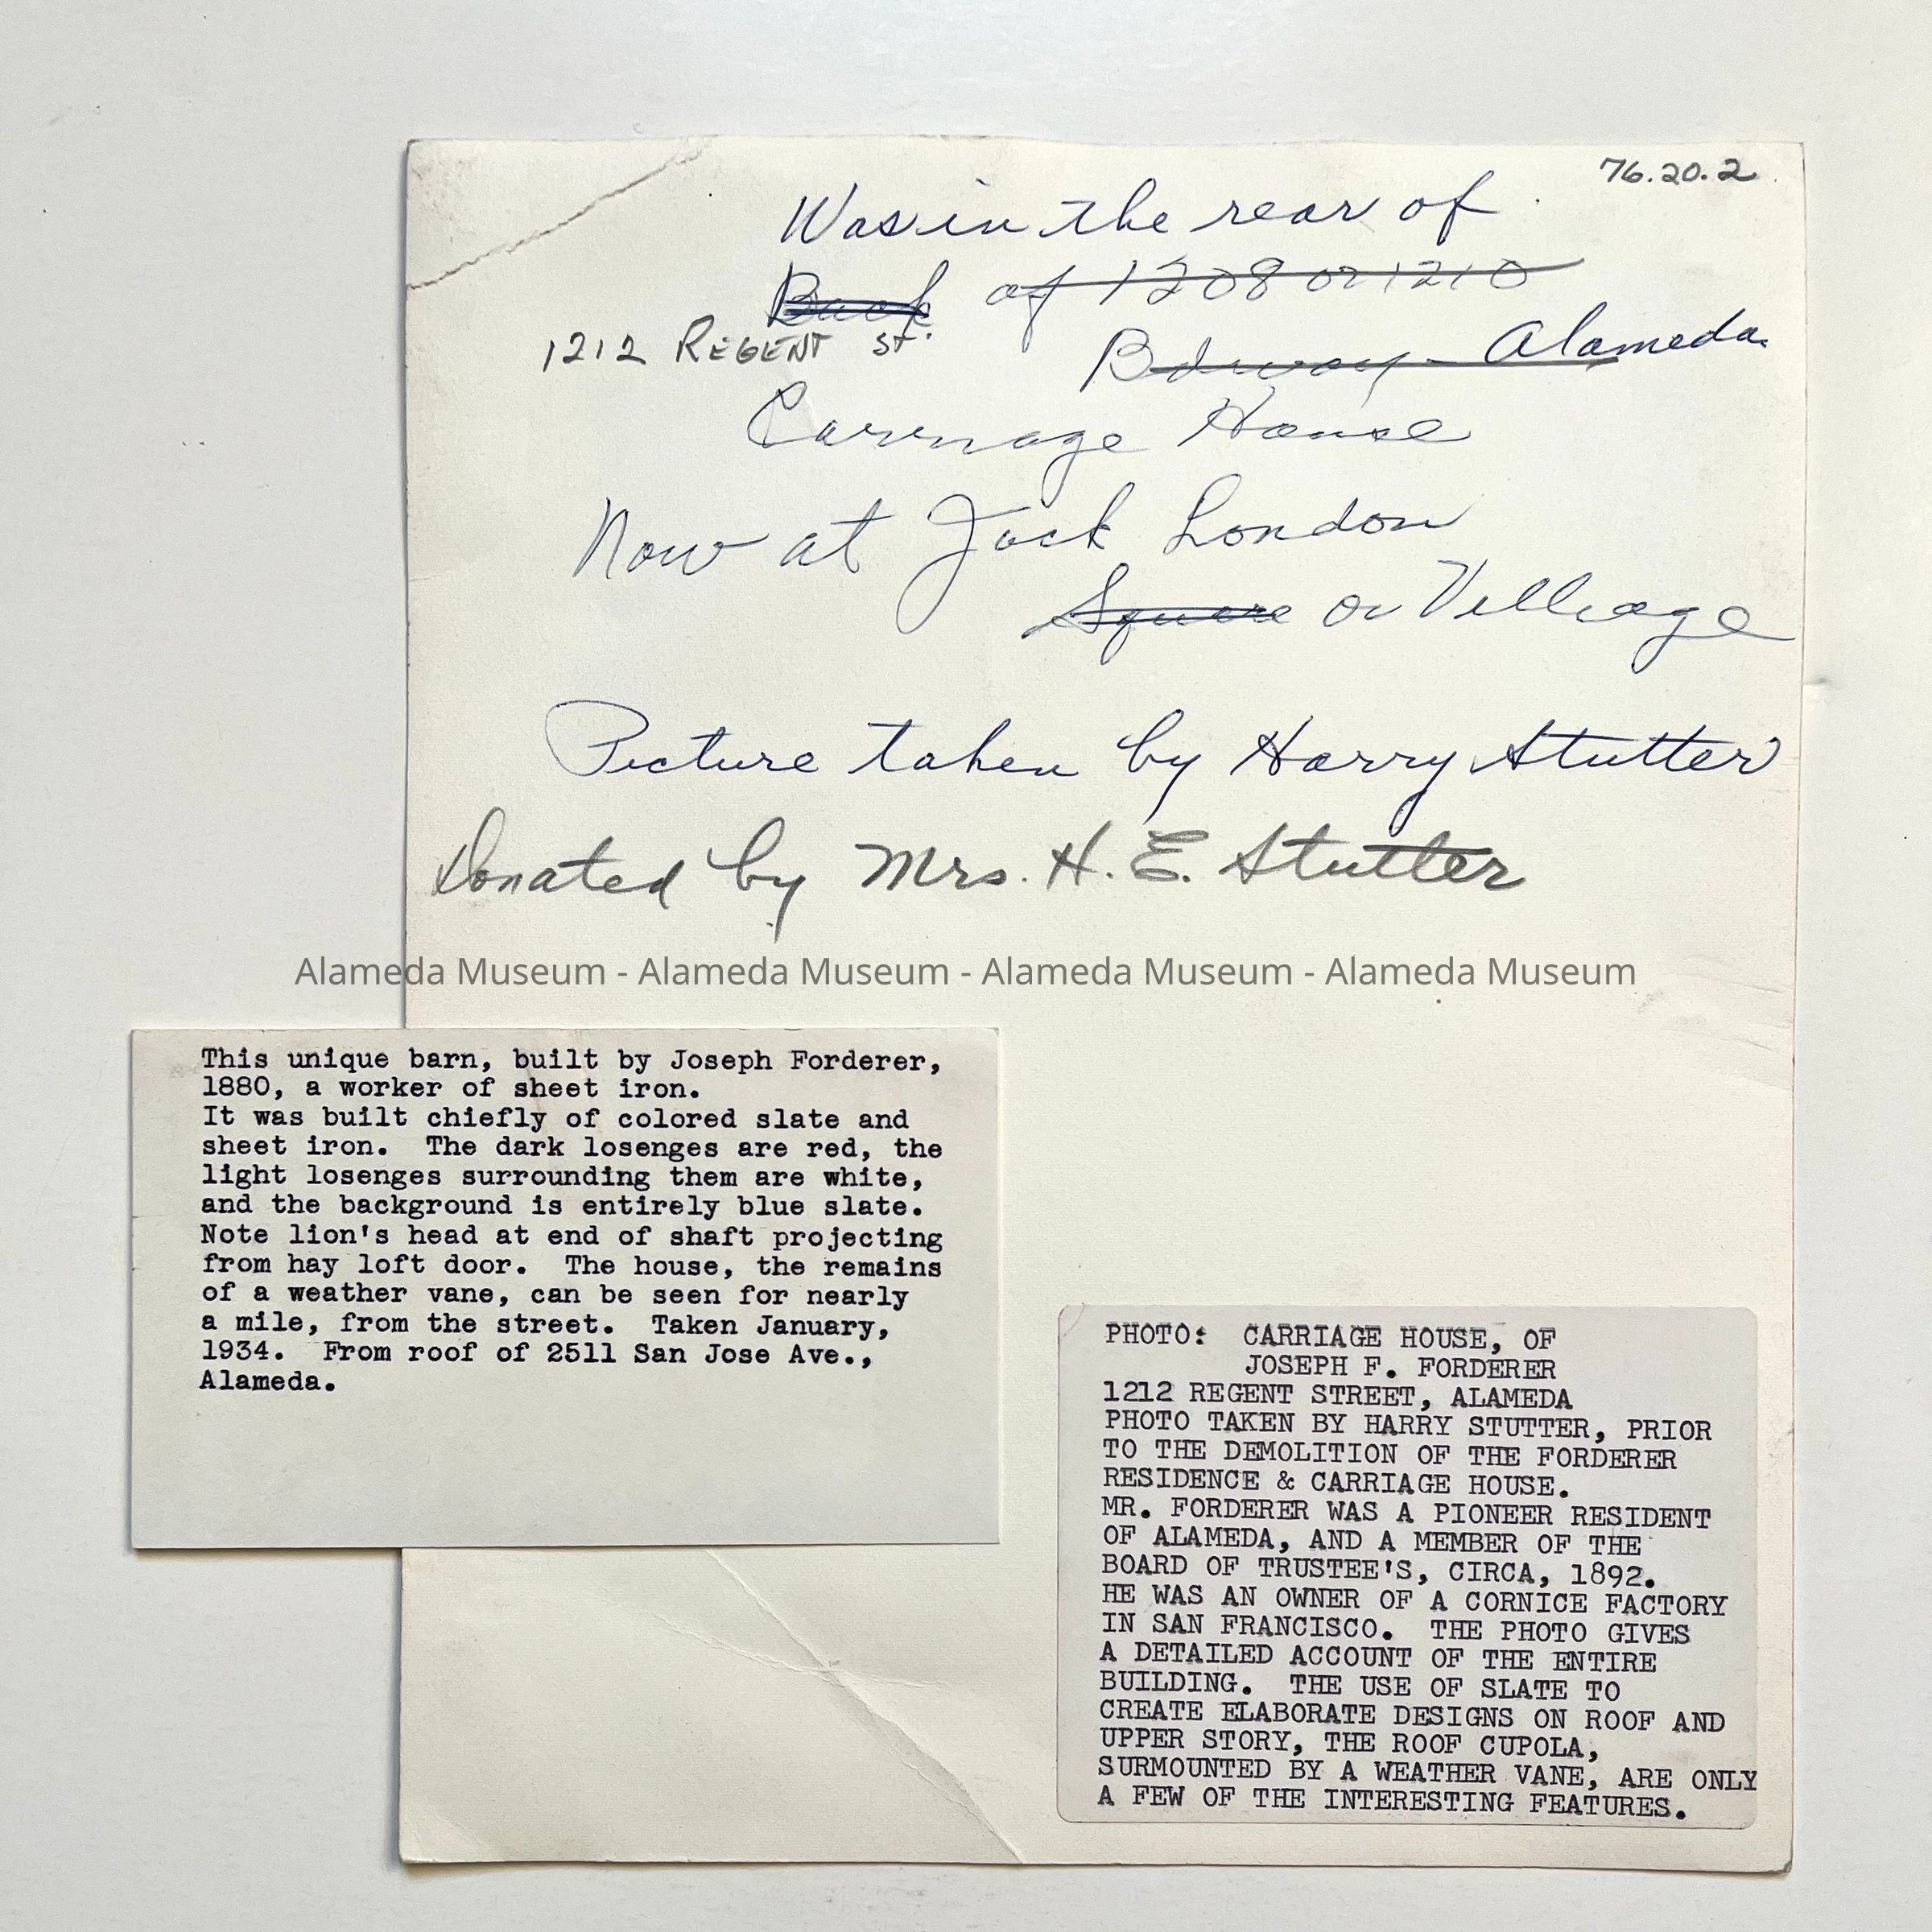 76.20.2
Was in the rear of
Back of 1208 or 1210
1212 REGENT ST.
Bdway - Alameda.
Carriage House
Now at Jack London
Square or Village
Picture taken by Harry Stutter
Donated by Mrs. H. E. Stutter
Alameda Museum - Alameda Museum - Alameda Museum - Alameda Museum
This unique barn, built by Joseph Forderer,
1880, a worker of sheet iron.
It was built chiefly of colored slate and
sheet iron.  The dark losenges are red, the
light losenges surrounding them are white,
and the background is entirely blue slate.
Note lion's head at end of shaft projecting
from hay loft door.  The house, the remains
of a weather vane, can be seen for nearly
a mile, from the street.  Taken January,
1934.  From roof of 2511 San Jose Ave.,
Alameda.
PHOTO:  CARRIAGE HOUSE, OF
JOSEPH F. FORDERER
1212 REGENT STREET, ALAMEDA
PHOTO TAKEN BY HARRY STUTTER, PRIOR
TO THE DEMOLITION OF THE FORDERER
RESIDENCE & CARRIAGE HOUSE.
MR. FORDERER WAS A PIONEER RESIDENT
OF ALAMEDA, AND A MEMBER OF THE
BOARD OF TRUSTEE'S, CIRCA, 1892.
HE WAS AN OWNER OF A CORNICE FACTORY
IN SAN FRANCISCO.  THE PHOTO GIVES
A DETAILED ACCOUNT OF THE ENTIRE
BUILDING.  THE USE OF SLATE TO
CREATE ELABORATE DESIGNS ON ROOF AND
UPPER STORY, THE ROOF CUPOLA,
SURMOUNTED BY A WEATHER VANE, ARE ONLY
A FEW OF THE INTERESTING FEATURES.